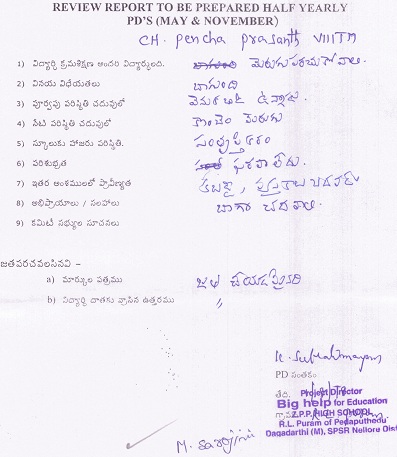 REVIEW REPORT TO BE PREPARED HALF YEARLY
PD'S (MAY & NOVEMBER)
CH. pencha prasanth VIIITH
1) విద్యార్థి క్రమశిక్షణ ఇందరి విద్యార్థులది. మెరుగుపరచుకోవాలి.
2) వినయ విధేయతలు బాగుంది
3) పూర్వపు పరిస్థితి చదువులో వెనుకబడి ఉన్నాడు.
4) నేటి పరిస్థితి చదువులో కొంచెం మెరుగు
5) స్కూలుకు హాజరు పరిస్థితి. సంతృప్తికరం
6) పరిశుభ్రత పరవాలేదు.
7) ఇతర అంశములలో ప్రావీణ్యత కబడ్డీ, పుస్తకాలు చదవడం
8) అభిప్రాయాలు / సలహాలు బాగా చదవాలి.
9) కమిటీ సభ్యుల సూచనలు
జతపరచవలసినవి –
a) మార్కుల పత్రము జత చేయడమైనది
b) విద్యార్థి దాతకు వ్రాసిన ఉత్తరము "
K. Subrahmanyam
PD సంతకం
తేది. Project Director
Big help for Education
Z.P.P. HIGH SCHOOL
R.L. Puram of Pedaputhedu
Dagadarthi (M), SPSR Nellore Dist
M. Sarojini